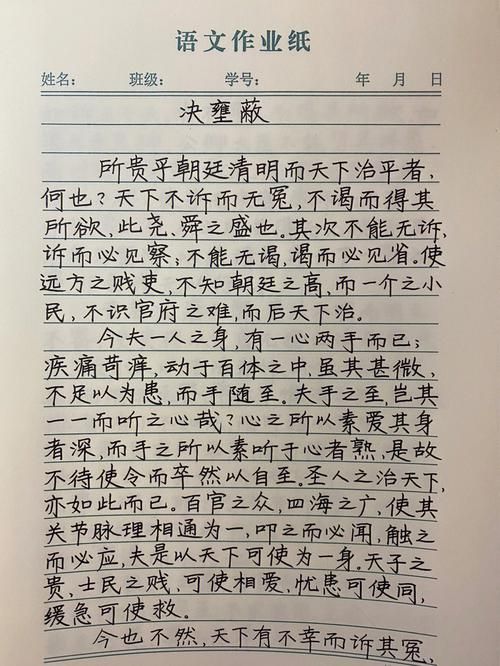 语文作业纸
姓名： 班级： 学号： 年 月 日
决壅蔽
所贵乎朝廷清明而天下治平者，
何也？天下不诉而无冤，不谒而得其
所欲，此尧、舜之盛也。其次不能无诉，
诉而必见察；不能无谒，谒而必见省。使
远方之贱吏，不知朝廷之高，而一介之小
民，不识官府之难，而后天下治。
今夫一人之身，有一心两手而已；
疾痛苛痒，动于百体之中，虽其甚微，
不足以为患，而手随至。夫手之至，岂其
一一而听之心哉？心之所以素爱其身
者深，而手之所以素听于心者熟，是故
不待使令而卒然以自至。圣人之治天下，
亦如此而已。百官之众，四海之广，使其
关节脉理相通为一，叩之而必闻，触之
而必应，夫是以天下可使为一身。天子之
贵，士民之贱，可使相爱，忧患可使同，
缓急可使救。
今也不然，天下有不幸而诉其冤，